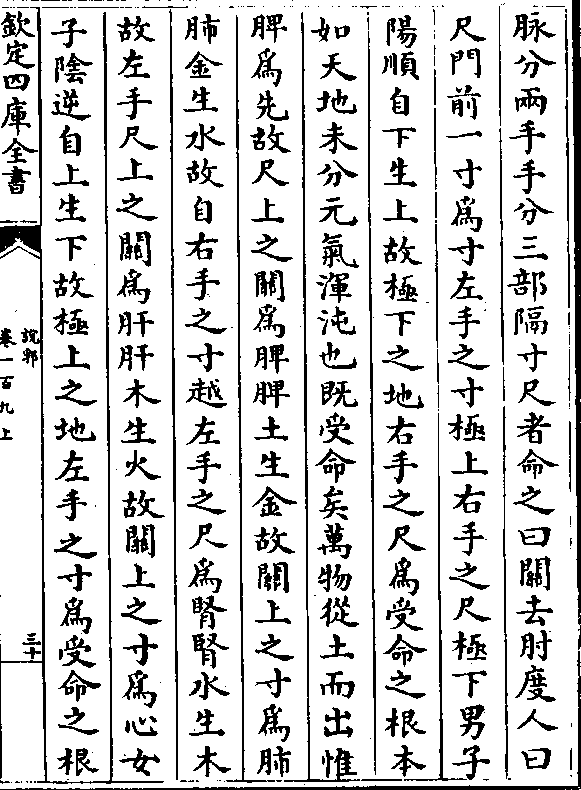 脉分兩手手分三部隔寸尺者命之曰關去肘度人曰
尺關前一寸爲寸左手之寸極上右手之尺極下男子
陽順自下生上故極下之地右手之尺爲受命之根本
如天地未分元氣渾沌也既受命矣萬物從土而出惟
脾爲先故尺上之關爲脾脾土生金故關上之寸爲肺
肺金生水故自右手之寸越左手之尺爲腎腎水生木
故左手尺上之關爲肝肝木生火故關上之寸爲心女
子陰逆自上生下故極上之地左手之寸爲受命之根
欽定四庫全書
說郛
卷一百九上
三十